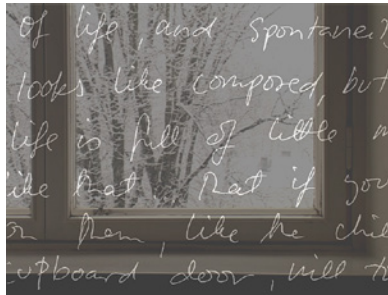 of life, and spontaneit
looks like composed, but
life is full of little m
like that, that if you
on them, like the chil
cupboard door, will th